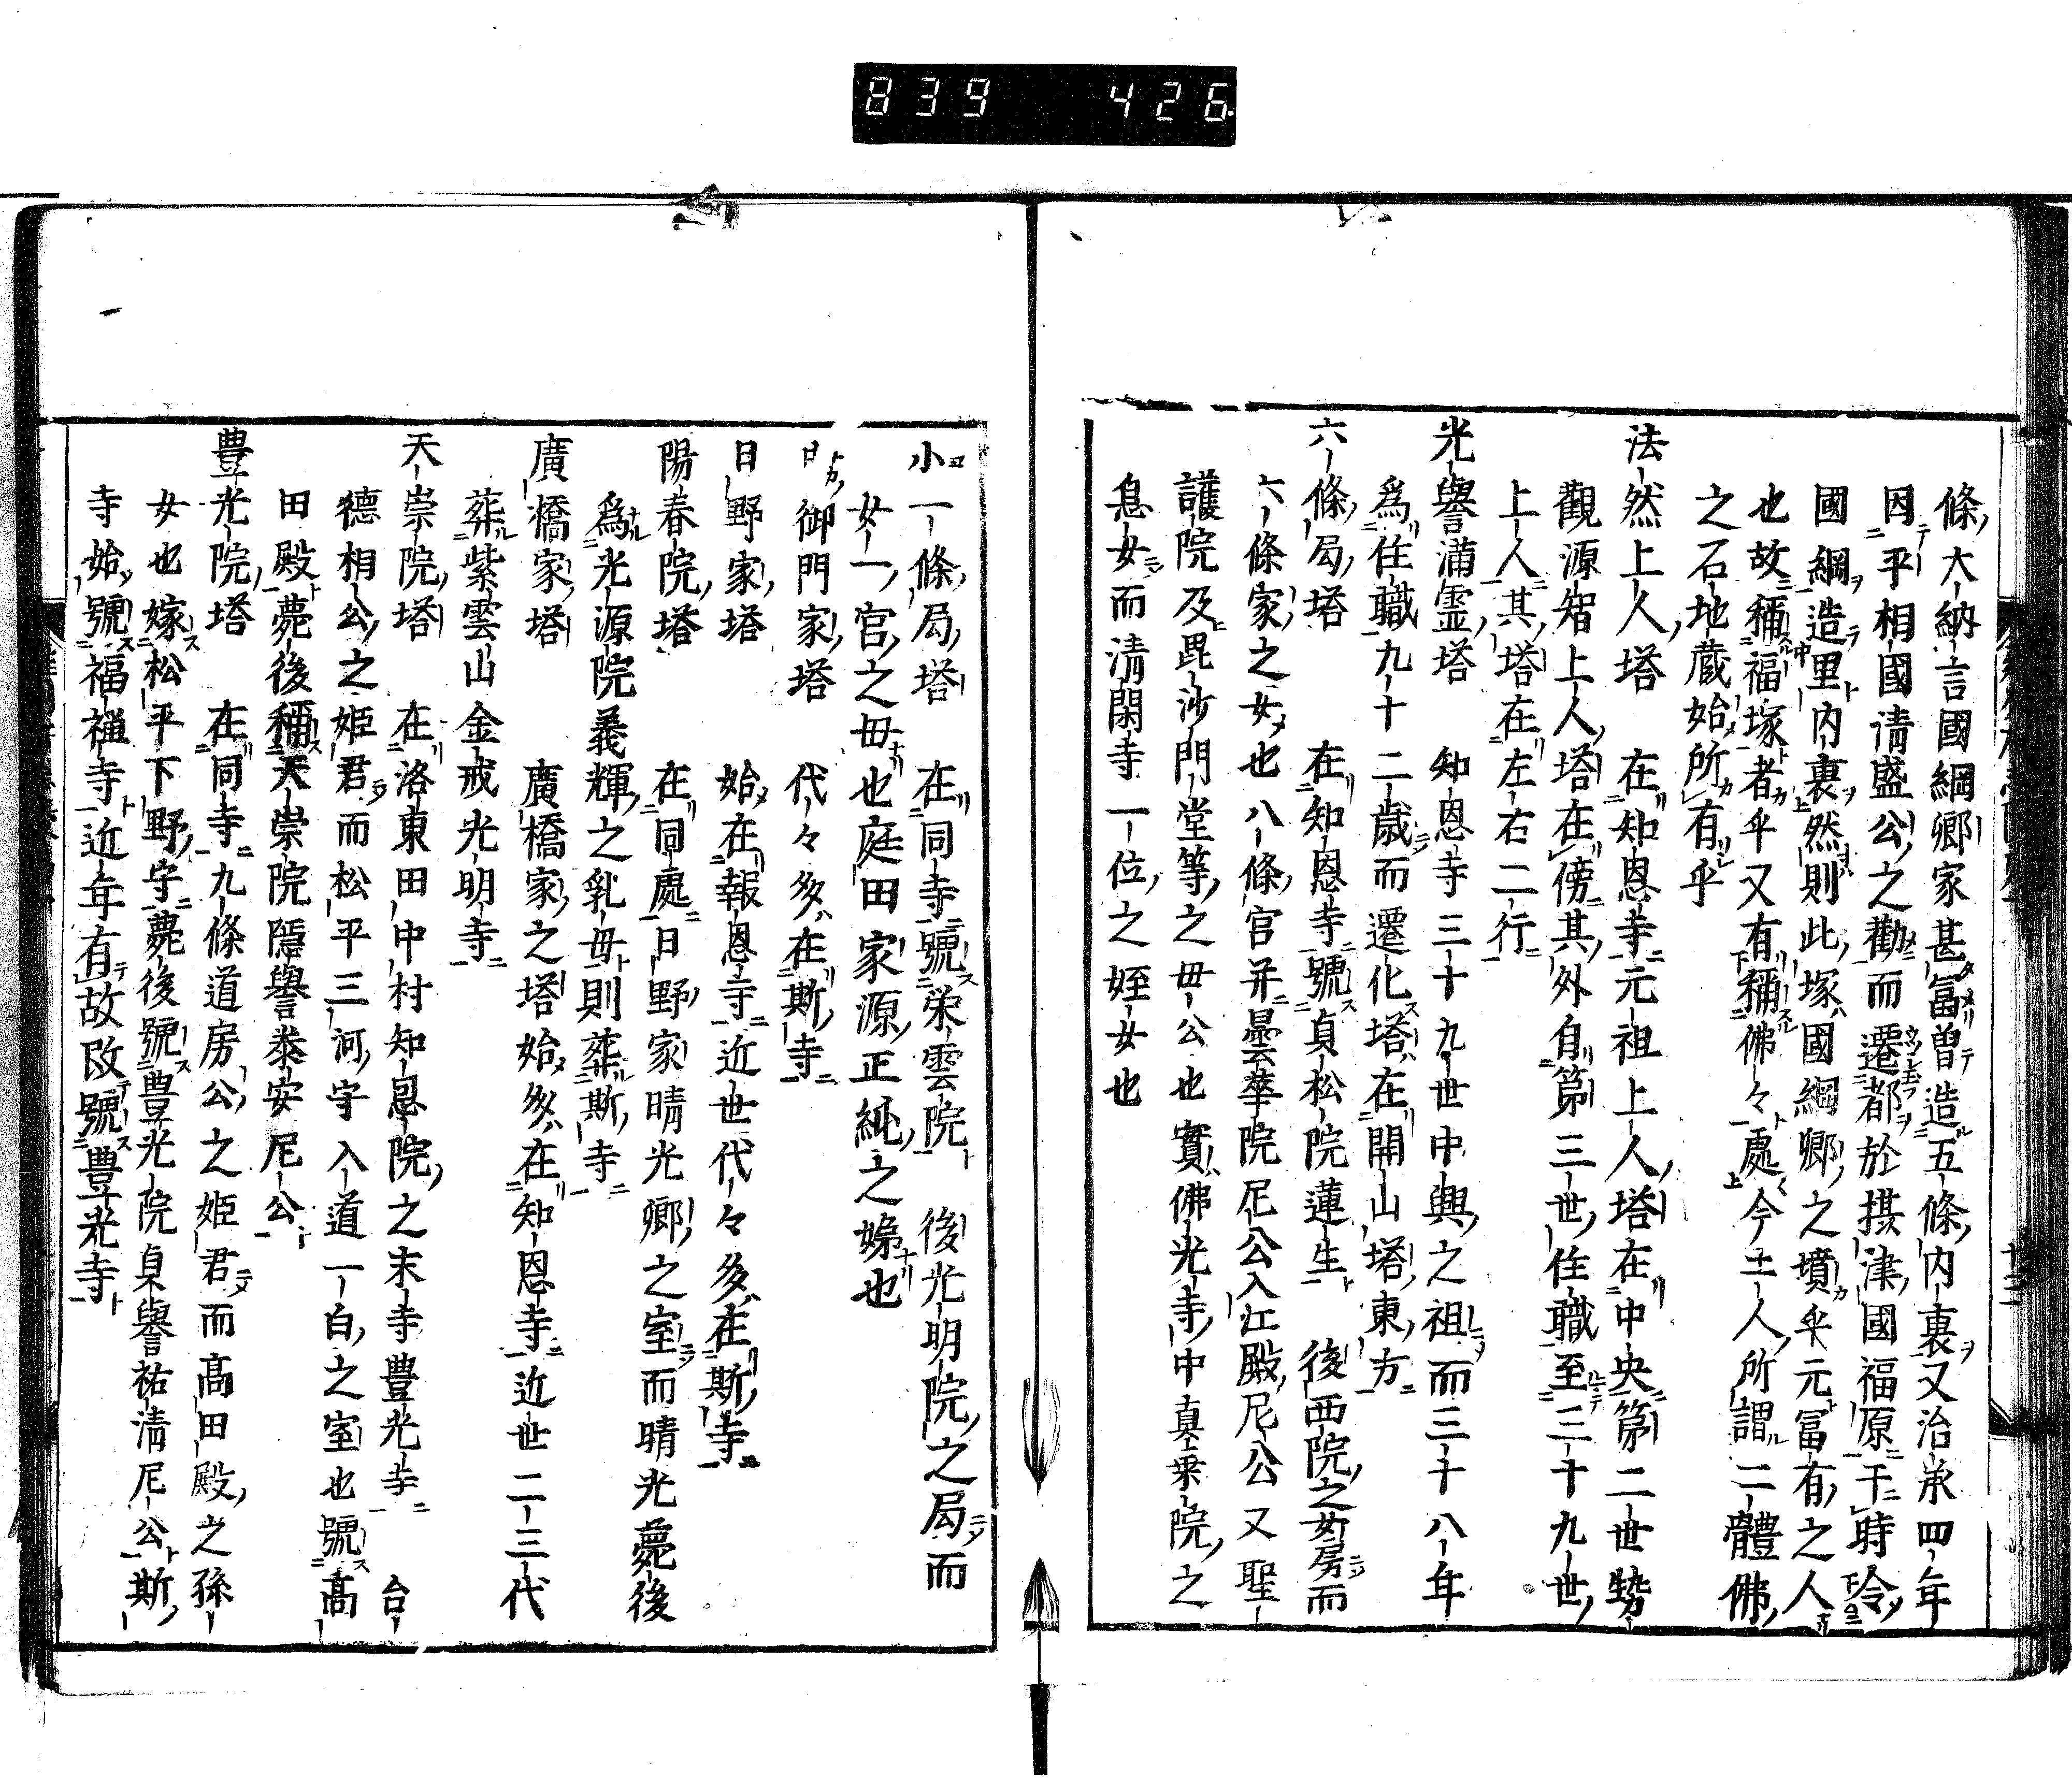 839 426
條大納言國綱卿家甚冨曽造五條内裏又治承四年
因平相國清盛公之勸而遷都於摂津國福原于時令
國綱造里内裏然則此塚國綱卿之墳乎元冨有之人
也故稱福塚者乎又有稱佛々處今土人所謂二體佛
之石地蔵始所有乎
法然上人塔　在知恩寺元祖上人塔在中央第二世勢
觀源智上人塔在傍其外自第三世住職至三十九世
上人其塔在左右二行
光譽満霊塔　知恩寺三十九世中興之祖而三十八年
爲住職九十二歳而遷化塔在開山塔東方
六條局塔　在知恩寺號貞松院蓮生　後西院之女房而
六條家之女也八條宮并曇華院尼公入江殿尼公又聖
護院及毘沙門堂等之母公也實佛光寺中真乗院之
息女而清閑寺一位之姪女也
小一條局塔　在同寺號栄雲院　後光明院之局而
女一宮之母也庭田家源正純之嫡也
御門家塔　代々多在斯寺
日野家塔　始在報恩寺近世代々多在斯寺
陽春院塔　在同處日野家晴光卿之室而晴光薨後
爲光源院義輝之乳母則葬斯寺
廣橋家塔　廣橋家之塔始多在知恩寺近世二三代
葬紫雲山金戒光明寺
天崇院塔　在洛東田中村知恩院之末寺豊光寺　台
德相公之姫君而松平三河守入道一白之室也號髙
田殿薨後稱天崇院隱譽泰安尼公
豊光院塔　在同寺九條道房公之姫君而髙田殿之孫
女也嫁松平下野守薨後號豊光院貞譽祐清尼公斯
寺始號福禅寺近年有故改號豊光寺